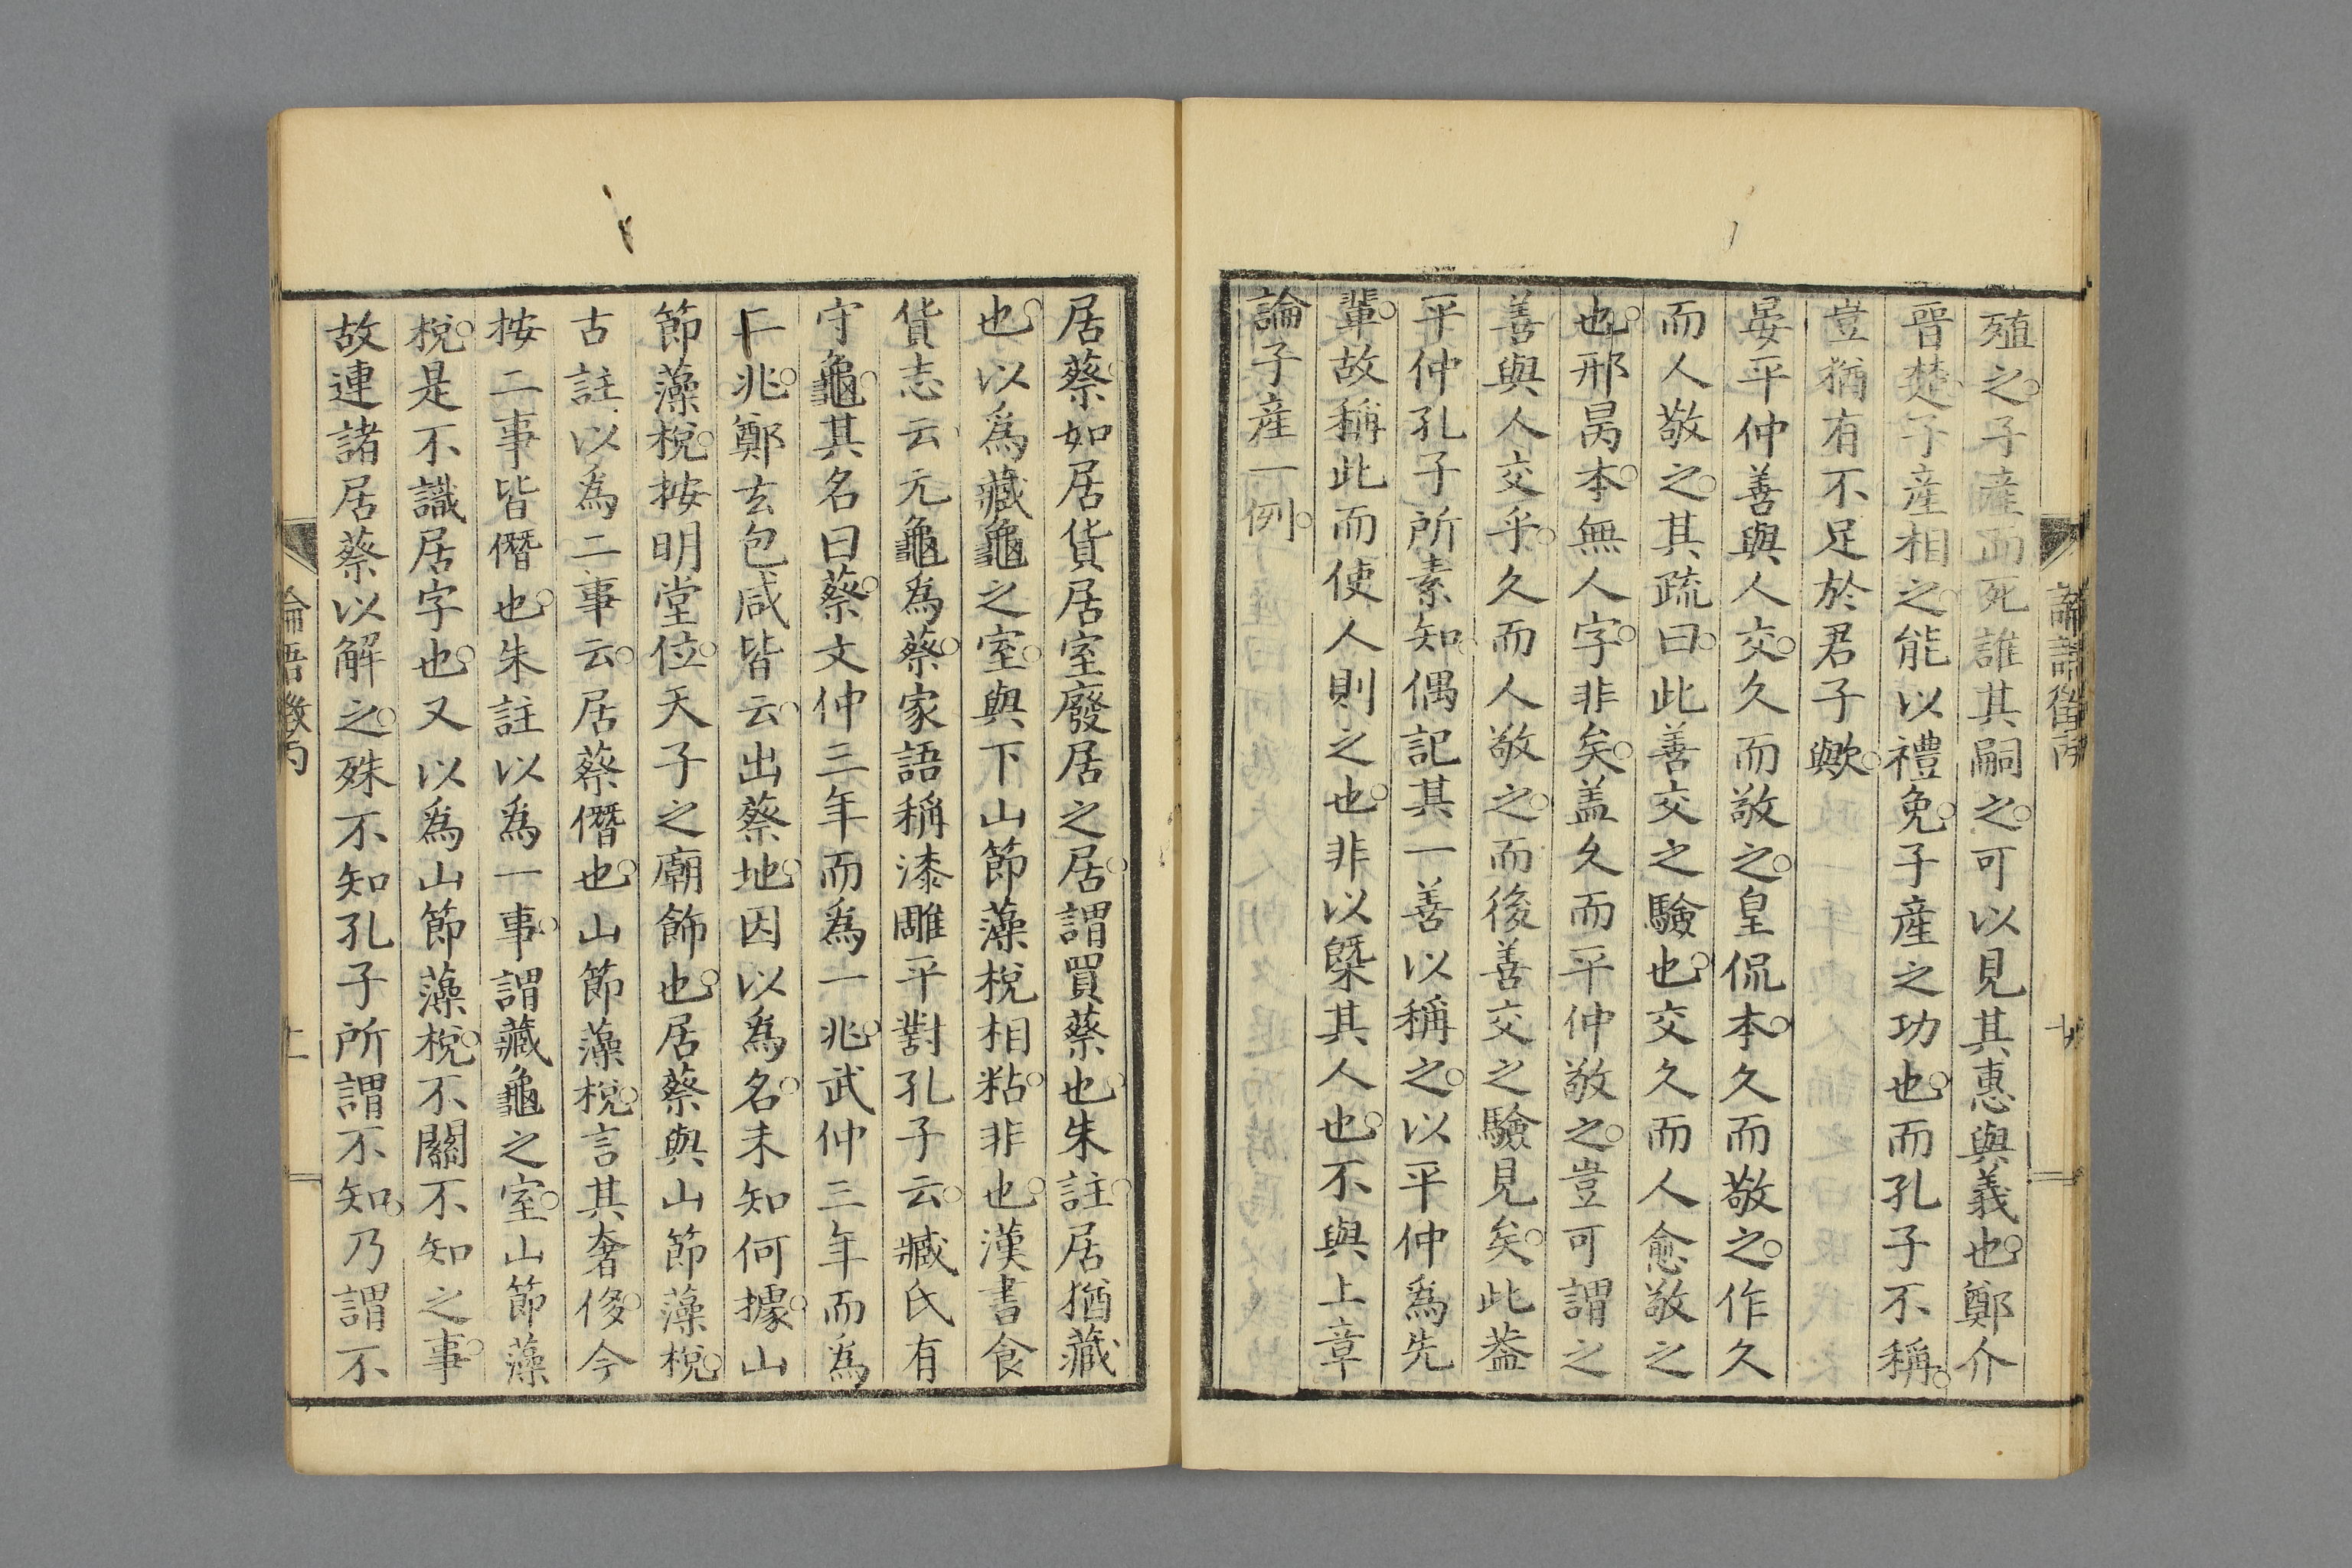 殖之。子產而死誰其嗣之。可以見其惠與義也。鄭介
晉楚。子産相之。能以禮免。子産之功也。而孔子不稱。
豈猶有不足於君子歟。
晏平仲善與人交。久而敬之。皇侃本。久而敬之。作久
而人敬之。其疏曰。此善交之驗也。交久而人愈敬之
也。邢昺本。無人字。非矣。盖久而平仲敬之。豈可謂之
善與人交乎。久而人敬之。而後善交之驗見矣。此葢
平仲孔子所素知。偶記其一善以稱之。以平仲爲先
輩。故稱此而使人則之也。非以槩其人也。不與上章
論子産一例。
居蔡。如居貨居室廢居之居。謂買蔡也。朱註。居猶藏
也。以爲藏龜之室。與下山節藻梲相粘。非也。漢書食
貨志云。元龜爲蔡。家語稱漆雕平對孔子云。臧氏有
守龜。其名曰蔡。文仲三年而爲一兆。武仲三年而爲
二兆。鄭玄包咸皆云。出蔡地。因以爲名。未知何據。山
節藻梲。按明堂位。天子之廟飾也。居蔡與山節藻梲。
古註以爲二事云。居蔡僭也。山節藻梲。言其奢侈。今
按二事皆僭也。朱註以爲一事。謂藏龜之室。山節藻
梲。是不識居字也。又以爲山節藻梲。不關不知之事。
故連諸居蔡以解之。殊不知孔子所謂不知。乃謂不